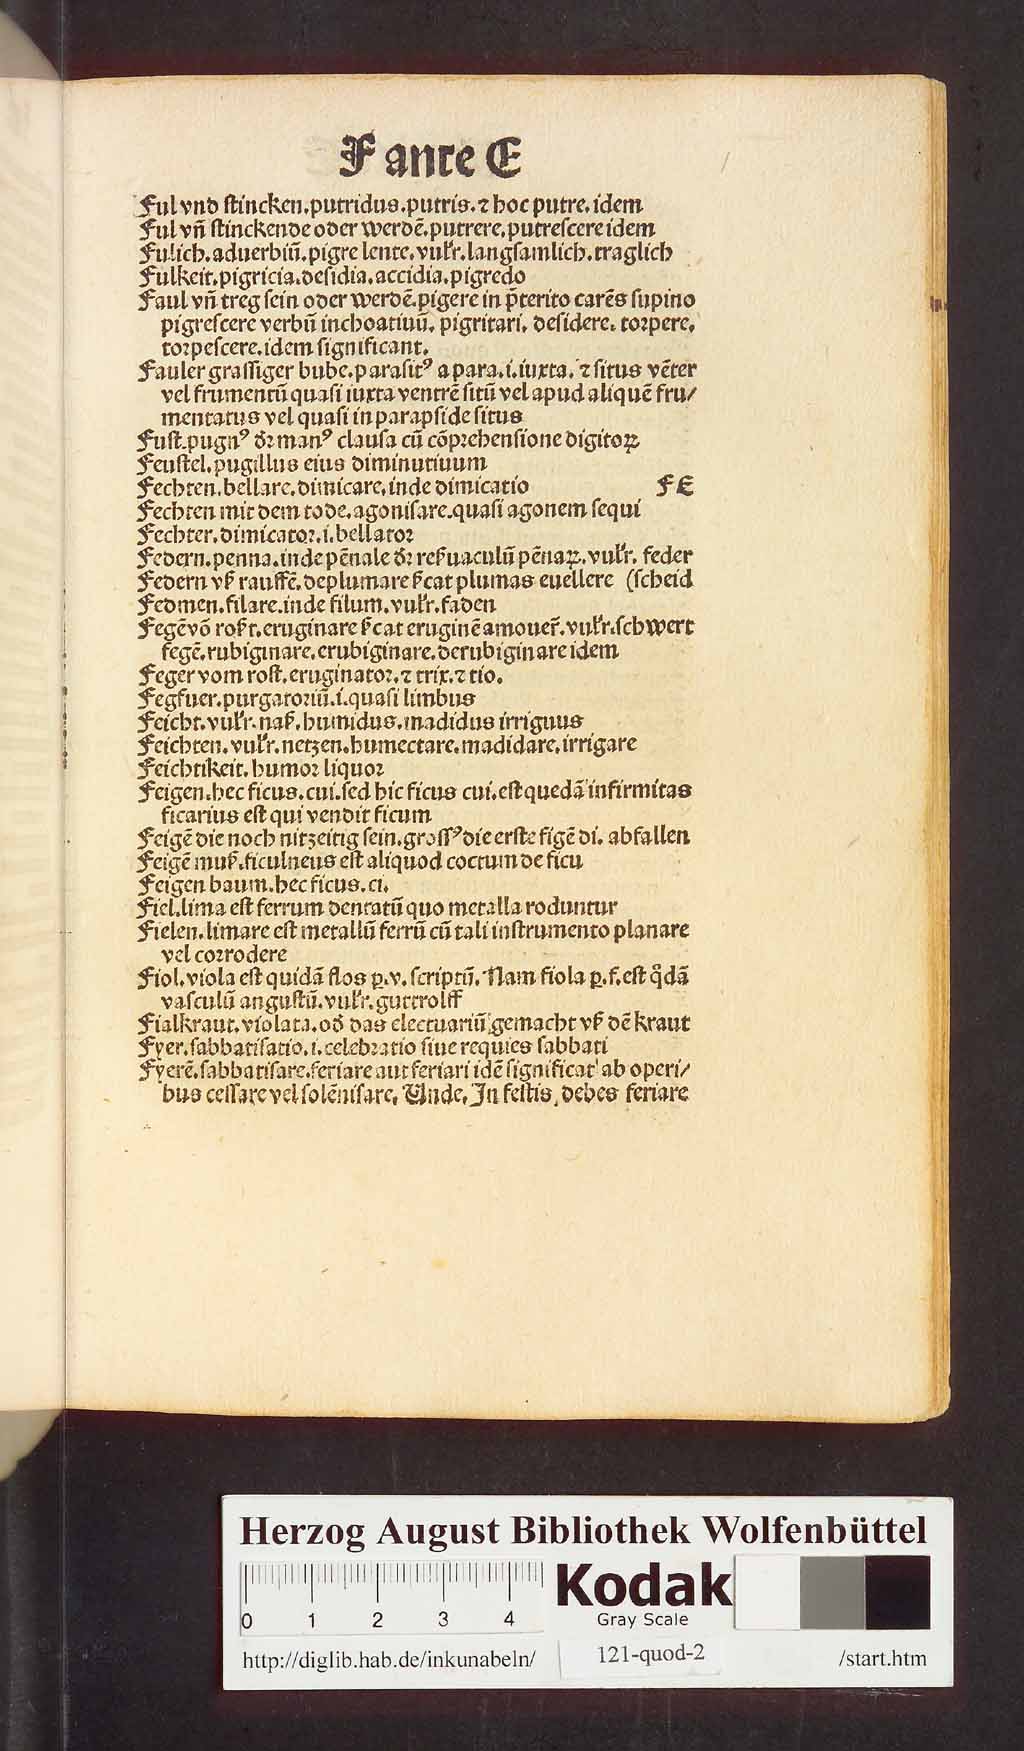 F ante E
Ful vnd stincken.putridus.putris.⁊ hoc putre.idem
Ful vn̄ stinckende oder werdē.putrere.putrescere idem
Fulich.aduerbiū.pigre lente.vulr̃.langsamlich.traglich
Fulkeit.pigricia.desidia.accidia.pigredo
Faul vn̄ treg sein oder werdē.pigere in p̄terito carēs supino
pigrescere verbū inchoatiuū. pigritari. desidere. torpere.
torpescere.idem significant.
Fauler grassiger bube.parasitꝰ a para.i.iuxta. ⁊ situs vēter
vel frumentū quasi iuxta ventrē sitū vel apud aliquē fru/
mentatus vel quasi in parapside situs
Fust.pugnꝰ dr̃ manꝰ clausa cū cōprehensione digitoꝝ
Feustel.pugillus eius diminutiuum
Fechten.bellare.dimicare.inde dimicatio FE
Fechten mit dem tode.agonisare.quasi agonem sequi
Fechter.dimicator.i.bellator
Federn.penna.inde pēnale dr̃ reẜuaculū pēnaꝝ.vulr̃. feder
Federn vß rauffē.deplumare ẜcat plumas euellere (scheid
Fedmen.filare.inde filum.vulr̃.faden
Fegē vō roßt.eruginare ẜcat eruginē amouer̃.vulr̃.schwert
fegē.rubiginare.erubiginare.derubiginare idem
Feger vom rost.eruginator.⁊ trix.⁊ tio.
Fegfuer.purgatoriū.i.quasi limbus
Feicht.vulr̃.naß.humidus.madidus irriguus
Feichten.vulr̃.netzen.humectare.madidare.irrigare
Feichtikeit.humor liquor
Feigen.hec ficus.cui.sed hic ficus cui.est quedā infirmitas
ficarius est qui vendit ficum
Feigē die noch nit zeitig sein.grossꝰ die erste figē di. abfallen
Feigē muß.ficulneus est aliquod coctum de ficu
Feigen baum.hec ficus.ci.
Fiel.lima est ferrum dentatū quo metalla roduntur
Fielen.limare est metallū ferrū cū tali instrumento planare
vel corrodere
Fiol.viola est quidā flos ꝑ.v.scriptū. Nam fiola ꝑ.f.est q̇dā
vasculū angustū.vulr̃.guttrolff
Fialkraut.violata.od̓ das electuariū gemacht vß dē kraut
Fyer.sabbatisatio.i.celebratio siue requies sabbati
Fyerē.sabbatisare.feriare aut feriari idē significat ab operi/
bus cessare vel solēnisare. Unde. In festis debes feriare
Herzog August Bibliothek Wolfenbüttel
0 1 2 3 4
Kodak
Gray Scale
http://diglib.hab.de/inkunabeln/ 121-quod-2 /start.htm